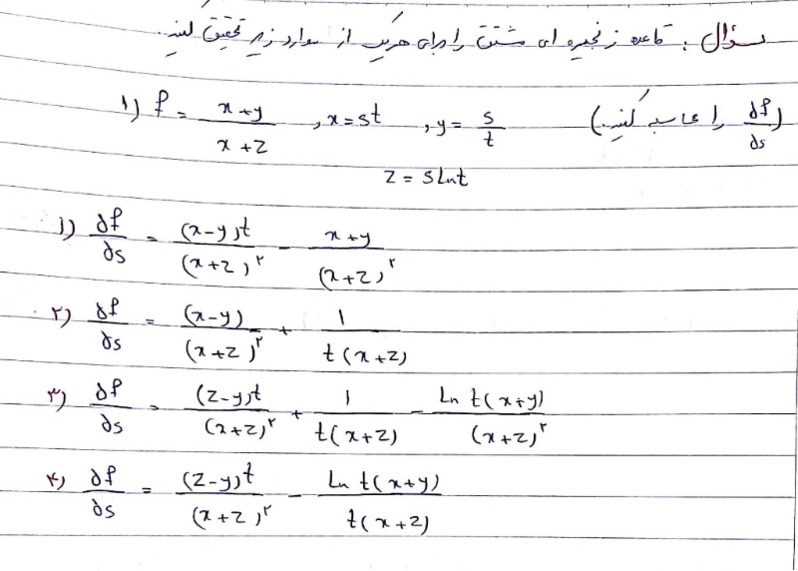 سؤال : قاعده زنجیره ای مشتق را برای هریک از موارد زیر تحقیق کنید.
۱) f = (x+y)/(x+z) , x=st , y= s/t (∂f/∂s را محاسبه کنید.)
z = s Ln t
۱) ∂f/∂s = (x-y)t/(x+z)^۲ - (x+y)/(x+z)^۲
۲) ∂f/∂s = (x-y)/(x+z)^۲ + 1/t(x+z)
۳) ∂f/∂s = (z-y)t/(x+z)^۲ + 1/t(x+z) - Ln t(x+y)/(x+z)^۲
۴) ∂f/∂s = (z-y)t/(x+z)^۲ - Ln t(x+y)/t(x+z)